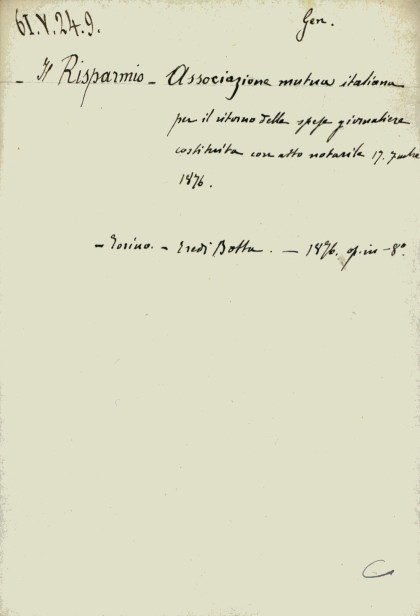 61.V.24.9.
Gen.
- Il Risparmio - Associazione mutua italiana
per il ritorno delle spese giornaliere
costituita con atto notarile 17. 7mbre
1876.
- Torino. - Eredi Botta. - 1876. op. in-8°
C